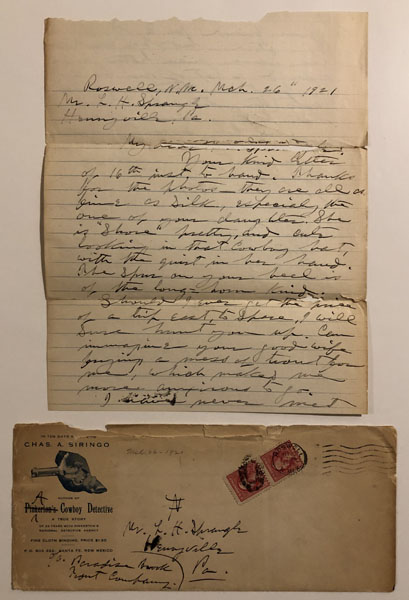 Roswell, N.M. Mch. 26" 1921
Mr. L. H. Sprangle
Henryville, Pa.
My
Your kind letter
of 16th inst, to hand. Thanks
for the photos — they are all as
fine as silk, especially the
one of your daughter. She
is "Shore" pretty, and cute
looking in that Cowboy hat,
with the quirt in her hand.
The Spur on your heel is
of the long-horn kind.
Should I ever get the
of a trip east, to Spare, I will
Sure hunt you up. Can
immagine your good wife
frying a mess of trout for
me, which makes me
more anxious to go.
I never met
IN THE DAYS
CHAS. A. SIRINGO
AUTHOR OF
A
Pinkerton's Cowboy Detective
A TRUE STORY
FINE CLOTH BINDING, PRICE $1.50
P. O. BOX 322, SANTA FE, NEW MEXICO
Mr. L. H. Sprangle
Henryville
Pa.
Paradise Brook
Trout Company